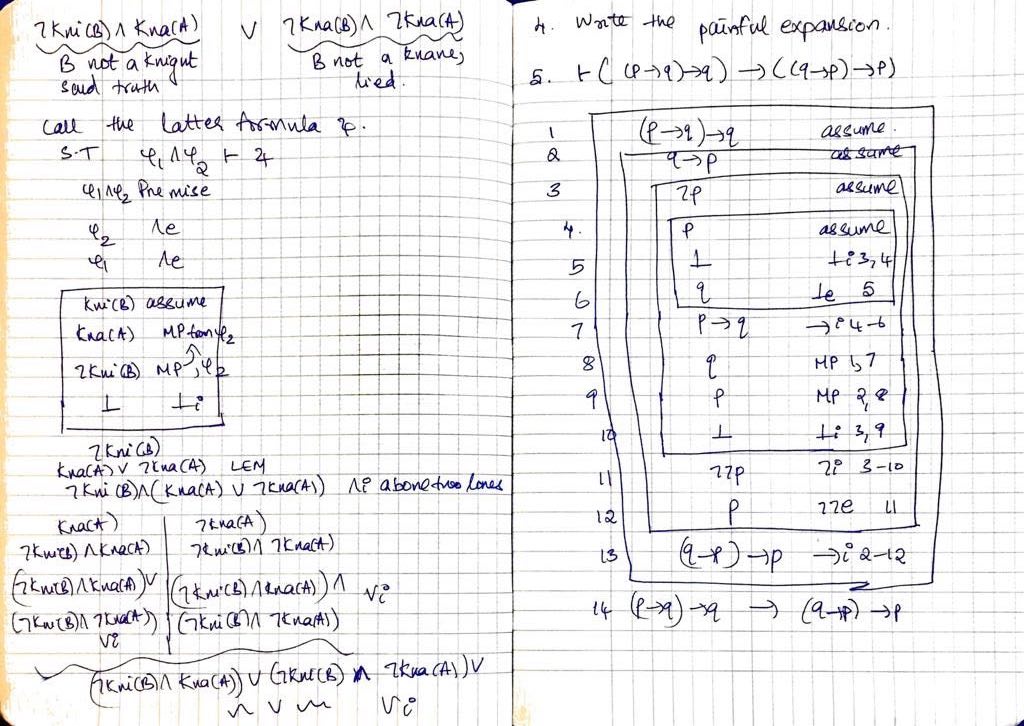 ¬Kni(B) ∧ Kna(A) ∨ ¬Kna(B) ∧ ¬Kna(A)
B not a Knight B not a knave,
said truth lied.
Call the latter formula ψ.
S.T φ₁ ∧ φ₂ ⊢ ψ
φ₁∧φ₂ Premise
φ₂ ∧e
φ₁ ∧e
Kni(B) assume
Kna(A) MP from φ₂
¬Kni(B) MP, φ₂
⊥ ⊥i
¬Kni(B)
Kna(A) ∨ ¬Kna(A) LEM
¬Kni(B) ∧ (Kna(A) ∨ ¬Kna(A)) ∧i above two lines
Kna(A) ¬Kna(A)
¬Kni(B) ∧ Kna(A) ¬Kni(B) ∧ ¬Kna(A)
(¬Kni(B) ∧ Kna(A)) ∨ (¬Kni(B) ∧ Kna(A)) ∧ ∨i
(¬Kni(B) ∧ ¬Kna(A)) (¬Kni(B) ∧ ¬Kna(A))
∨i
(¬Kni(B) ∧ Kna(A)) ∨ (¬Kni(B) ∧ ¬Kna(A)) ∨
∨ ∨i
4. Write the painful expansion.
5. ⊢ ((p→q)→q) → ((q→p)→p)
1 (p→q)→q assume.
2 q→p assume
3 ¬p assume
4. p assume
5 ⊥ ⊥i 3,4
6 q ⊥e 5
7 p→q →i 4-6
8 q MP 1,7
9 p MP 2,8
10 ⊥ ⊥i 3,9
11 ¬¬p ¬i 3-10
12 p ¬¬e 11
13 (q→p)→p →i 2-12
14 (p→q)→q → (q→p)→p